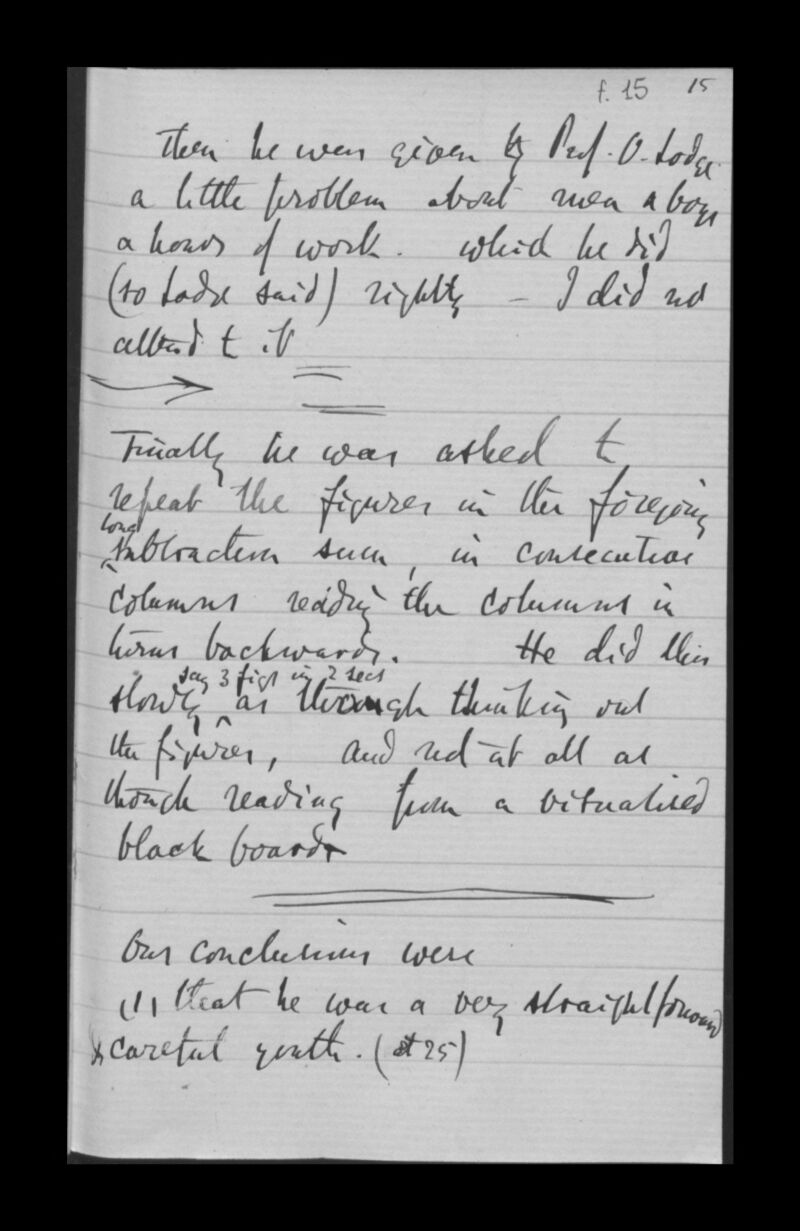 f. 15 15
then he was given by Prof. O. Lodge
a little problem about men & boys
& hours of work. which he did
(so Lodge said) rightly – I did not
attend to it
Finally he was asked to
repeat the figures in the foregoing
long
subtraction sum, in consecutive
columns reading the columns in
turns backwards. He did this
say 3 figs in 2 secs
slowly as though thinking out
the figures, and not at all as
though reading from a visualised
black board
Our conclusions were
(1) that he was a very straightforward
& careful youth. (æt 25)